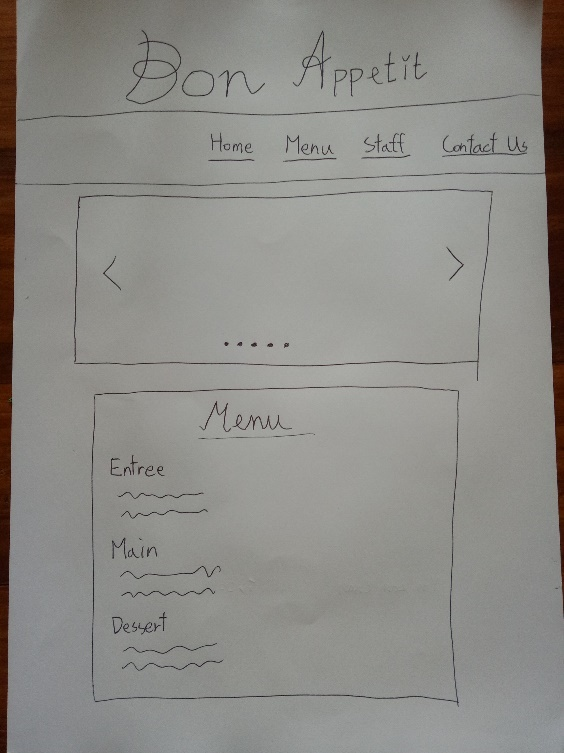 Bon Appetit
Home Menu Staff Contact Us
Menu
Entree
Main
Dessert